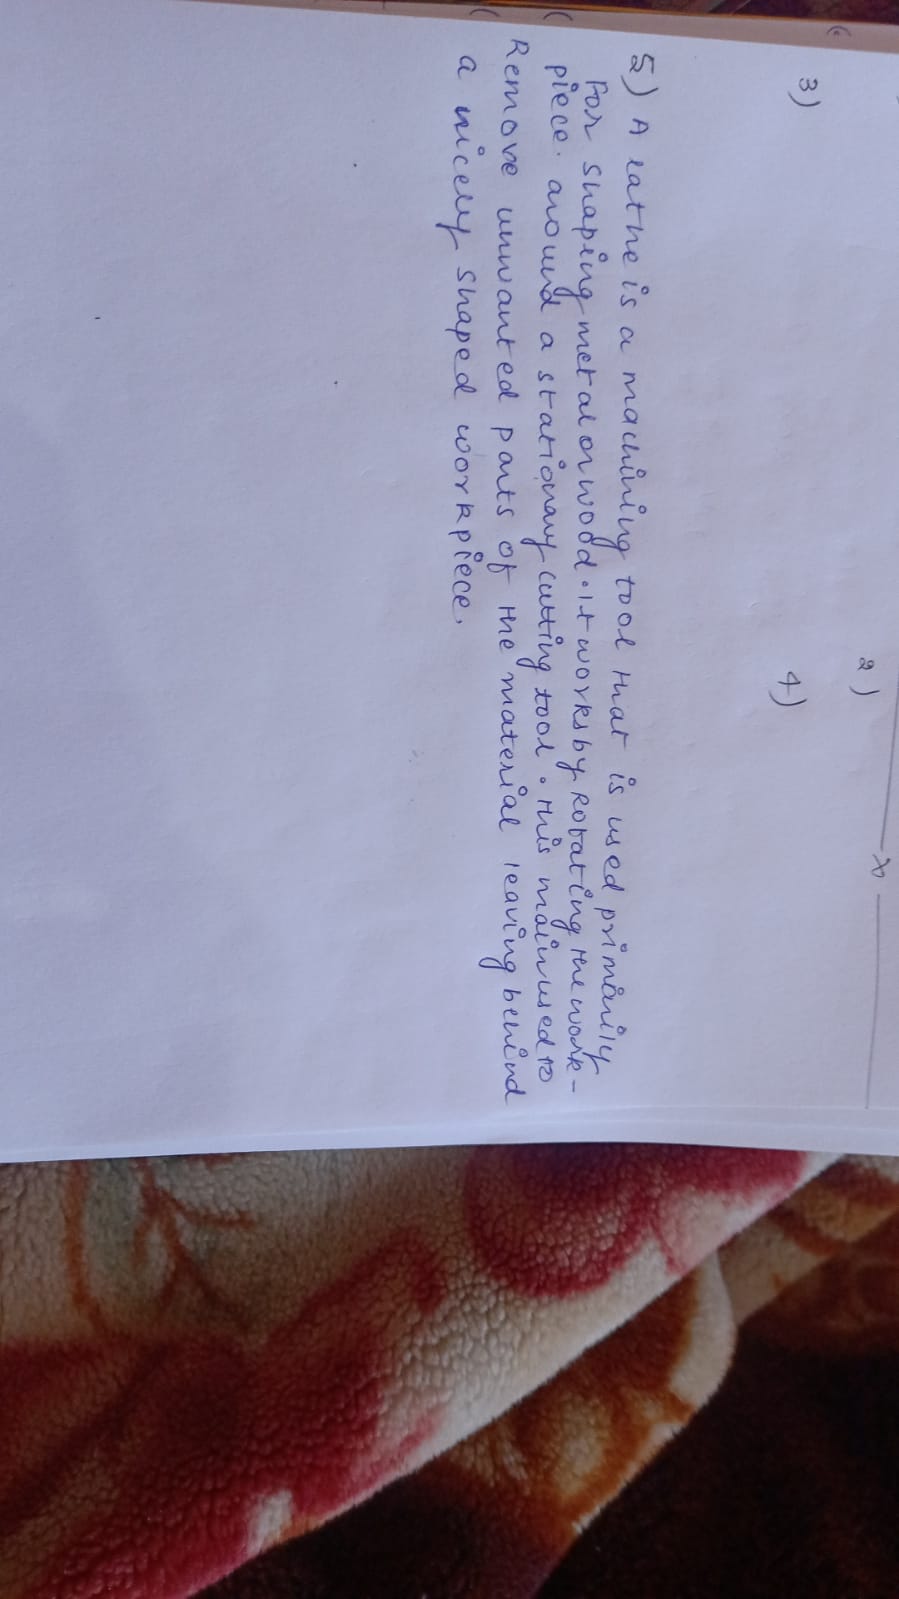 2)
3)
4)
5) A lathe is a machining tool that is used primarily
For shaping metal or wood. It works by Rotating the work-
piece. around a stationary cutting tool. This main used to
Remove unwanted parts of the material leaving behind
a nicely shaped workpiece.